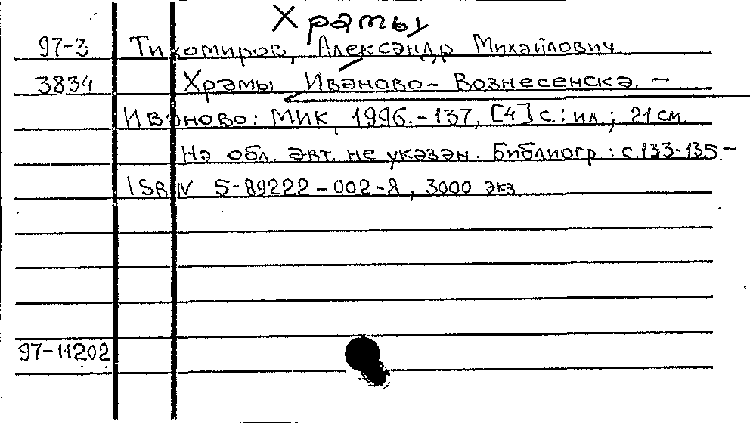 Храмы
97-3 Тихомиров, Александр Михайлович
3834 Храмы Иваново-Вознесенска. –
Иваново: МИК, 1996.-137, [4] с.: ил.; 21 см.
На обл. авт. не указан. Библиогр.: с.133-135.–
ISBN 5-89222-002-8, 3000 экз
97-11202